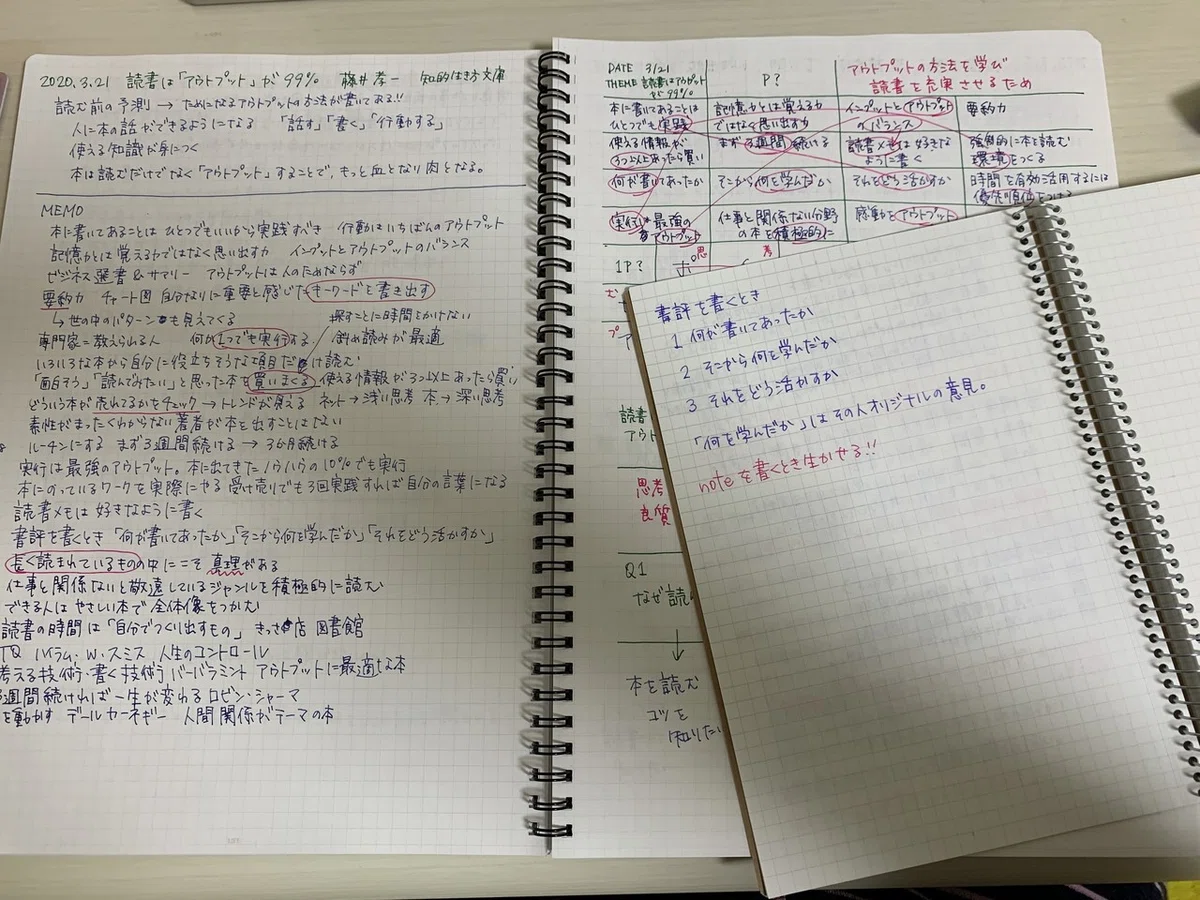 2020.3.21 読書は「アウトプット」が99% 藤井孝一 知的生き方文庫
読む前の予測 → ためになるアウトプットの方法が書いてある!!
人に本の話ができるようになる 「話す」「書く」「行動する」
使える知識が身につく
本は読むだけでなく「アウトプット」することで、もっと血となり肉となる。
MEMO
本に書いてあることはひとつでもいいから実践すべき 行動はいちばんのアウトプット
記憶力とは覚える力ではなく思い出す力 インプットとアウトプットのバランス
ビジネス選書&サマリー アウトプットは人のためならず
要約力 チャート図 自分なりに重要と感じたキーワードを書き出す
↳世の中のパターンも見えてくる 探すことに時間をかけない
専門家=教えられる人 何か1つでも実行する 斜め読みが最適
いろいろな本から自分に役立ちそうな項目だけ読む
「面白そう」「読んでみたい」と思った本を買いまくる 使える情報が3つ以上あったら買い
どういう本が売れてるかをチェック→トレンドが見える ネット→浅い思考 本→深い思考
素性がまったくわからない著者が本を出すことはない
ルーチンにする まず3週間続ける → 3か月続ける
実行は最強のアウトプット。本に出てきたノウハウの10%でも実行
本にのっているワークを実際にやる 受け売りでも3回実践すれば自分の言葉になる
読書メモは好きなように書く
書評を書くとき「何が書いてあったか」「そこから何を学んだか」「それをどう活かすか」
長く読まれているものの中にこそ真理がある
仕事と関係ないと敬遠しているジャンルを積極的に読む
できる人はやさしい本で全体像をつかむ
読書の時間は「自分でつくり出すもの」 きっさ店 図書館
TQ ハイラム・W・スミス 人生のコントロール
考える技術・書く技術 バーバラミント アウトプットに最適な本
3週間続ければ一生が変わる ロビン・シャーマ
を動かす デールカーネギー 人間関係がテーマの本
DATE 3/21
THEME 読書はアウトプットが99%
P?
アウトプットの方法を学び
読書を充実させるため
本に書いてあることは
ひとつでも実践
記憶力とは覚える力
ではなく思い出す力
インプットとアウトプット
のバランス
要約力
使える情報が
3つ以上あったら買い
まず3週間続ける
読書メモは好きな
ように書く
強制的に本を読む
環境をつくる
何が書いてあったか
そこから何を学んだか
それをどう活かすか
時間を有効活用するには
優先順位をつける
実行は最強の
アウトプット
仕事と関係ない分野
の本を積極的に
感動をアウトプット
1P?
読書
アウト
思考
良質
Q1
なぜ読
↓
本を読む
コツを
知りたい
書評を書くとき
1 何が書いてあったか
2 そこから何を学んだか
3 それをどう活かすか
「何を学んだか」はその人オリジナルの意見。
noteを書くとき生かせる!!